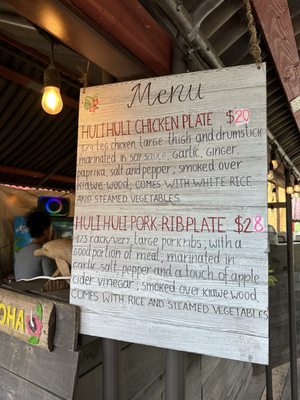 Menu
HULI HULI CHICKEN PLATE $20
chicken, large thigh and drumstick
marinated in soy sauce, garlic, ginger,
paprika, salt and pepper; smoked over
kiawe wood; comes with white rice
and steamed vegetables.
HULI HULI PORK RIB PLATE $28
very large pork ribs, with a
good portion of meat, marinated in
garlic salt, pepper and a touch of apple
cider vinegar; smoked over kiawe wood,
comes with rice and steamed vegetables
OHA